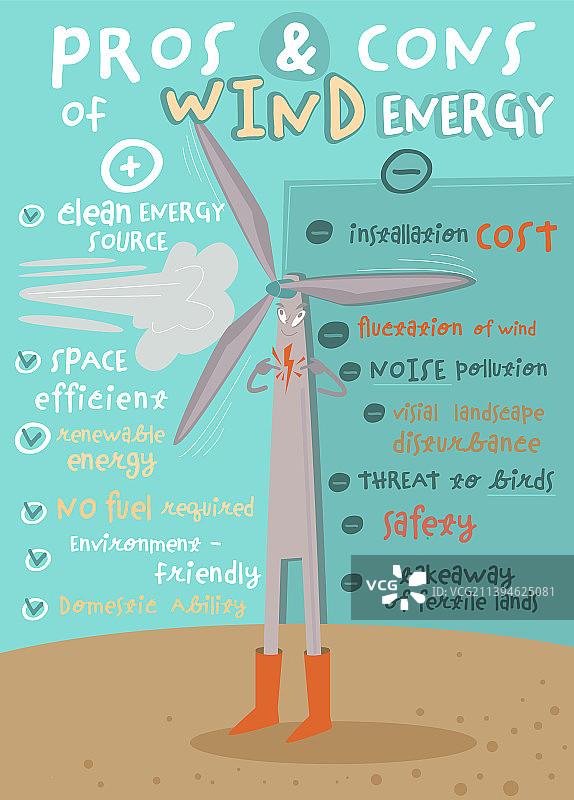 PROS & CONS
of WIND ENERGY
+
clean ENERGY
SOURCE
SPACE
efficient
renewable
energy
NO fuel required
Environment -
friendly
Domestic Ability
−
installation COST
fluctation of wind
NOISE pollution
visial landscape
disturbance
THREAT to birds
safety
takeaway
of fertile lands
VCG
ID:VCG211394625081